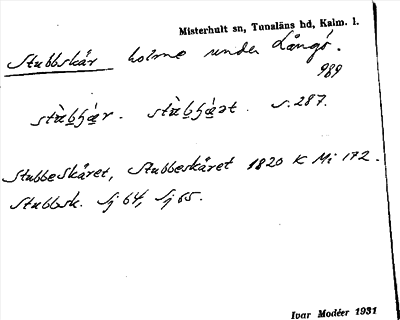 Misterhult sn, Tunaläns hd, Kalm. l.
Stubbskär holme under Långö.
989
stù̀bʃæ̀r. stù̀bʃæ̀ət. s. 287.
Stubbeskäret, Stubbeskåret 1820 K Mi 172.
Stubbsk. Sj 64, Sj 65.
Ivar Modéer 1931